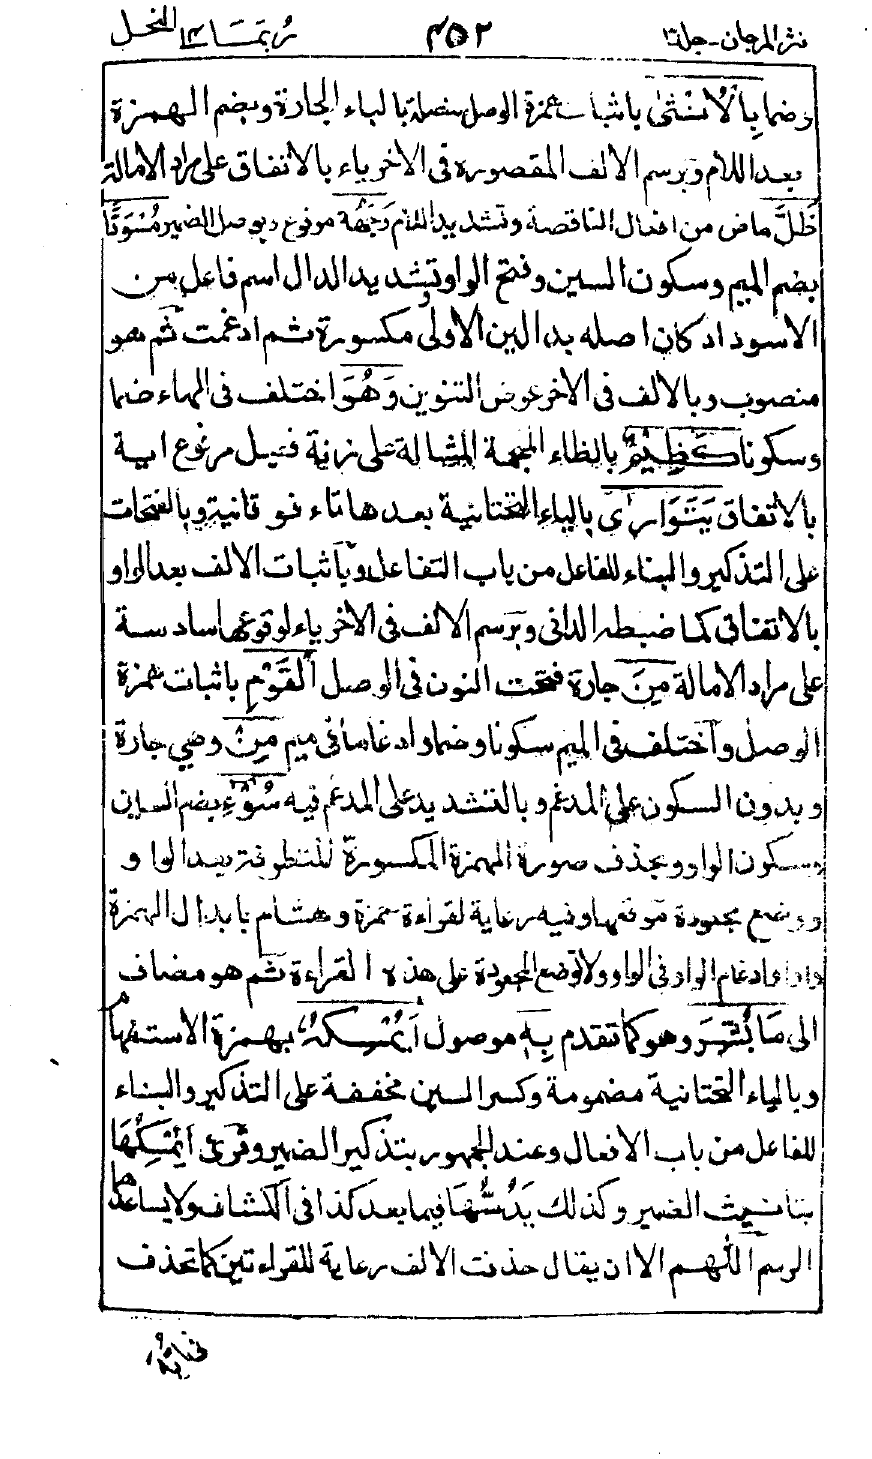 نثر المرجان - جلد ٣ ٤٥٢ ربما ١٤ النحل
وضما بِالْاُنْثٰى باثبات همزة الوصل متصلة بالباء الجارة وبضم الهمزة
بعد اللام وبرسم الالف المقصورة فى الاخر ياء بالاتفاق على مراد الامالة
ظَلَّ ماض من افعال الناقصة وتشديد اللام وَجْهُهٗ مرفوع وبوصل الضمير مُسْوَدًّا
بضم الميم وسكون السين وفتح الواو وتشديد الدال اسم فاعل من
الاسوداد كان اصله بدالين الاولى مكسورة ثم ادغمت ثم هو
منصوب وبالالف فى الاخر عوض التنوين وَهُوَ اختلف فى الهاء ضما
وسكونا كَظِيْمٌ بالظاء المعجمة المشالة على زنة فعيل مرفوع اية
بالاتفاق يَتَوَارٰى بالياء التحتانية بعدها تاء فوقانية وبالفتحات
على التذكير والبناء للفاعل من باب التفاعل وباثبات الالف بعد الواو
بالاتفاق كما ضبطه الدانى وبرسم الالف فى الاخر ياء لوقوعها سادسة
على مراد الامالة مِنَ جارة فتحت النون فى الوصل الْقَوْمِ باثبات همزة
الوصل واختلف فى الميم سكونا وضما وادغاما فى ميم مِنْ وهي جارة
وبدون السكون على المدغم وبالتشديد على المدغم فيه سُوْٓءِ بضم السين
وسكون الواو وبحذف صورة الهمزة المكسورة المتطرفة بعد الواو
ووضع مجعودة موقعها وفيه رعاية لقراءة حمزة وهشام بابدال الهمزة
واوا وادغام الواو فى الواو ولا توضع المجعودة على هذه القراءة ثم هو مضاف
الى مَا بُشِّرَ وهو كما تقدم بِهٖ موصول اَيُمْسِكُهٗ بهمزة الاستفهام
وبالياء التحتانية مضمومة وكسر السين مخففة على التذكير والبناء
للفاعل من باب الافعال وعند الجمهور بتذكير الضمير وقرئ اَيُمْسِكُهَا
بتانيث الضمير وكذلك يَدُسُّهَا فيما بعد كذا فى الكشاف ولا يساعدها
الرسم اللهم الا ان يقال حذفت الالف رعاية للقراءتين كما تحذف